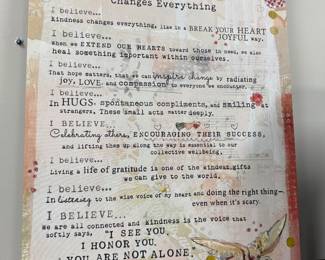 Changes Everything
I believe...
kindness changes everything, like in a BREAK YOUR HEART
JOYFUL way.
I believe...
when we EXTEND OUR HEARTS toward those in need, we also
heal something important within ourselves.
I believe...
That hope matters, that we can inspire change by radiating
joy, LOVE, and compassion to everyone we encounter.
I believe...
In HUGS, spontaneous compliments, and smiling at
strangers. These small acts matter deeply.
I BELIEVE...
Celebrating others, ENCOURAGING THEIR SUCCESS,
and lifting them up along the way is essential to our
collective wellbeing.
I believe...
Living a life of gratitude is one of the kindest gifts
we can give to the world.
I believe...
In listening to the wise voice of my heart and doing the right thing—
even when it's scary.
I BELIEVE...
We are all connected and kindness is the voice that
softly says, "I SEE YOU.
I HONOR YOU.
YOU ARE NOT ALONE."